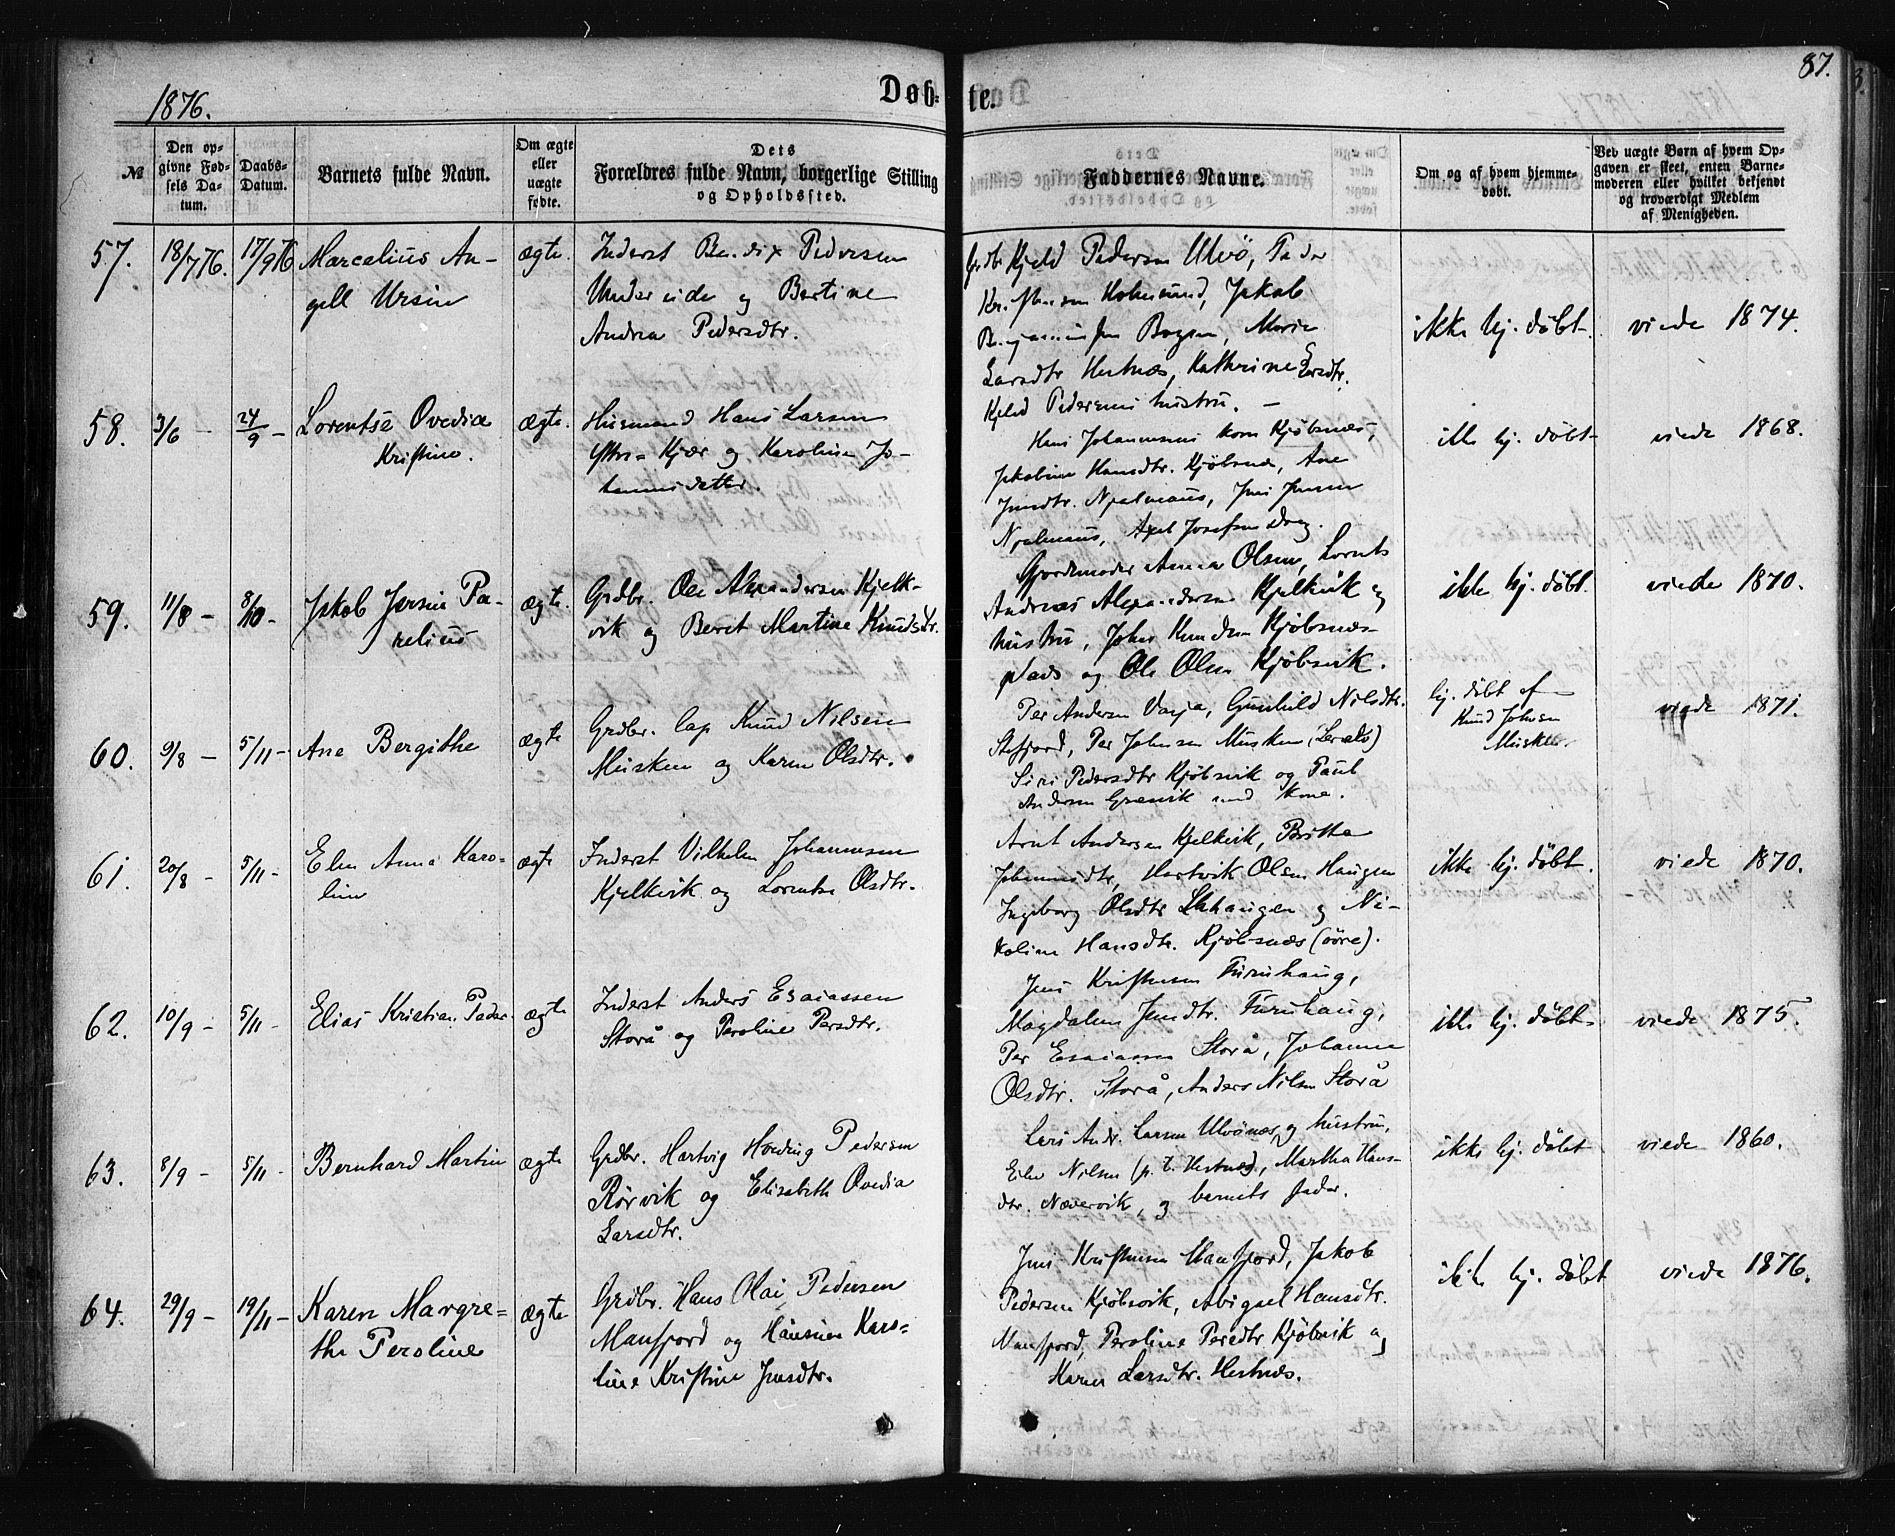 1876.
Døb-
te.
87.
№
Den op-
givne Fød-
sels Da-
tum.
Daabs-
Datum.
Barnets fulde Navn.
Om ægte
eller
uægte
fødte.
Dets
Forældres fulde Navn, borgerlige Stilling
og Opholdssted.
Faddernes Navne.
Om og af hvem hjemme-
døbt.
Ved uægte Børn af hvem Op-
gaven er skeet, enten Barne-
moderen eller hvilket bekjendt
og troværdigt Medlem
af Menigheden.
57.
18/7 76.
17/9 76
Marcelius An-
gell Ursin
ægte.
Inderst Bendix Pedersen
Undereide og Bertine
Andrea Pedersdtr.
Grdbr. Kjeld Pedersen Ulvö, Peder
Kr. Jensen Holmsund, Jakob
Benjaminsen Bogen, Marie
Larsdtr Hestnæs, Kathrine Larsdtr.
Kjeld Pedersens hustru. —
ikke hj. döbt.
viede 1874.
58.
3/6 —
24/9 —
Lorentse Ovedia
Kristine.
ægte.
Husmand Hans Larsen
Kjær og Karoline Jo-
hannesdatter.
Hans Johannesens kone Kjöbsnæs,
Jakobine Hansdtr. Kjöbsnæs, Ane
Jensdtr. Njalmaus, Jens Jensen
Njalmaus, Axel Josefsen Drag.
ikke hj. döbt —
viede 1868.
59.
11/8 —
8/10 —
Jakob Jersin Pa-
relius
ægte.
Grdbr. Ole Alexandersen Kjelk-
vik og Beret Martine Knudsdtr.
Gjordemoder Anna Olsen, Lornts
Andreas Alexandersen Kjelkvik og
hustru, John Knudsen Kjöbsnæs-
plads og Ole Olsen Kjöbsvik.
ikke hj. döbt.
viede 1870.
60.
9/8 —
5/11 —
Ane Bergithe
ægte
Grdbr. lap Knud Nilsen
Musken og Karen Olsdtr.
Per Andersen Varja, Gunhild Nilsdtr.
Stefjord, Per Johnsen Musken,
Siri Pedersdtr Kjöbsvik og Paul
Andersen Grænvik med kone.
hj. döbt af
Knud Johnsen
Musken.
viede 1871.
61.
20/8 —
5/11 —
Elen Anna Karo-
line
ægte
Inderst Vilhelm Johannesen
Kjelkvik og Lorentse Olsdtr.
Arnt Andersen Kjelkvik, Britha
Johannesdtr, Hartvik Olsen Haugen
Ingeborg Olsdtr Lkhaugen og Ni-
koline Hansdtr. Kjöbsnæs (övre).
ikke hj. döbt.
viede 1870.
62.
10/9 —
5/11 —
Elias Kristian Peder
ægte
Inderst Anders Esaiassen
Storå og Peroline Persdtr.
Jens Kristensen Furuhaug,
Magdalene Jensdtr. Furuhaug,
Per Esaiassen Storå, Johanne
Olsdtr. Storå, Anders Nilsen Storå
ikke hj. döbt —
viede 1875.
63.
8/9 —
5/11 —
Bernhard Martin
ægte
Grdbr. Hartvig Hveding Pedersen
Rörvik og Elisabeth Ovedia
Larsdtr.
Lars Andr. Larsen Ulvönæs og hustru,
Eiler Nilsen (p. t. Hestnes), Martha Hans-
dtr. Nævervik, og barnets fader.
ikke hj. döbt
viede 1860.
64.
29/9 —
19/11 —
Karen Margre-
the Peroline
ægte
Grdbr. Hans Olai Pedersen
Mansfjord og Hansine Karo-
line Kristine Jensdtr.
Jens Kristensen Mansfjord, Jakob
Pedersen Kjöbsvik, Abigael Hansdtr.
Mansfjord, Peroline Persdtr Kjöbsvik og
Karen Larsdtr. Hestnæs.
ikke hj. döbt
viede 1876.